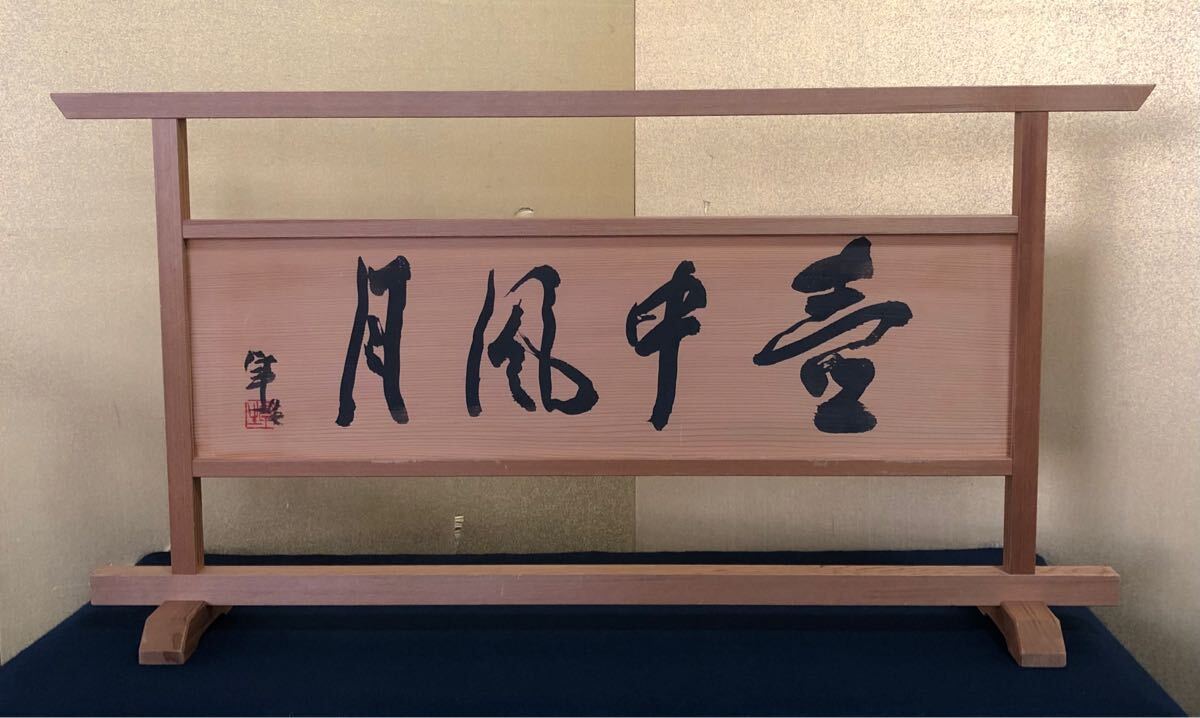 壺中風月